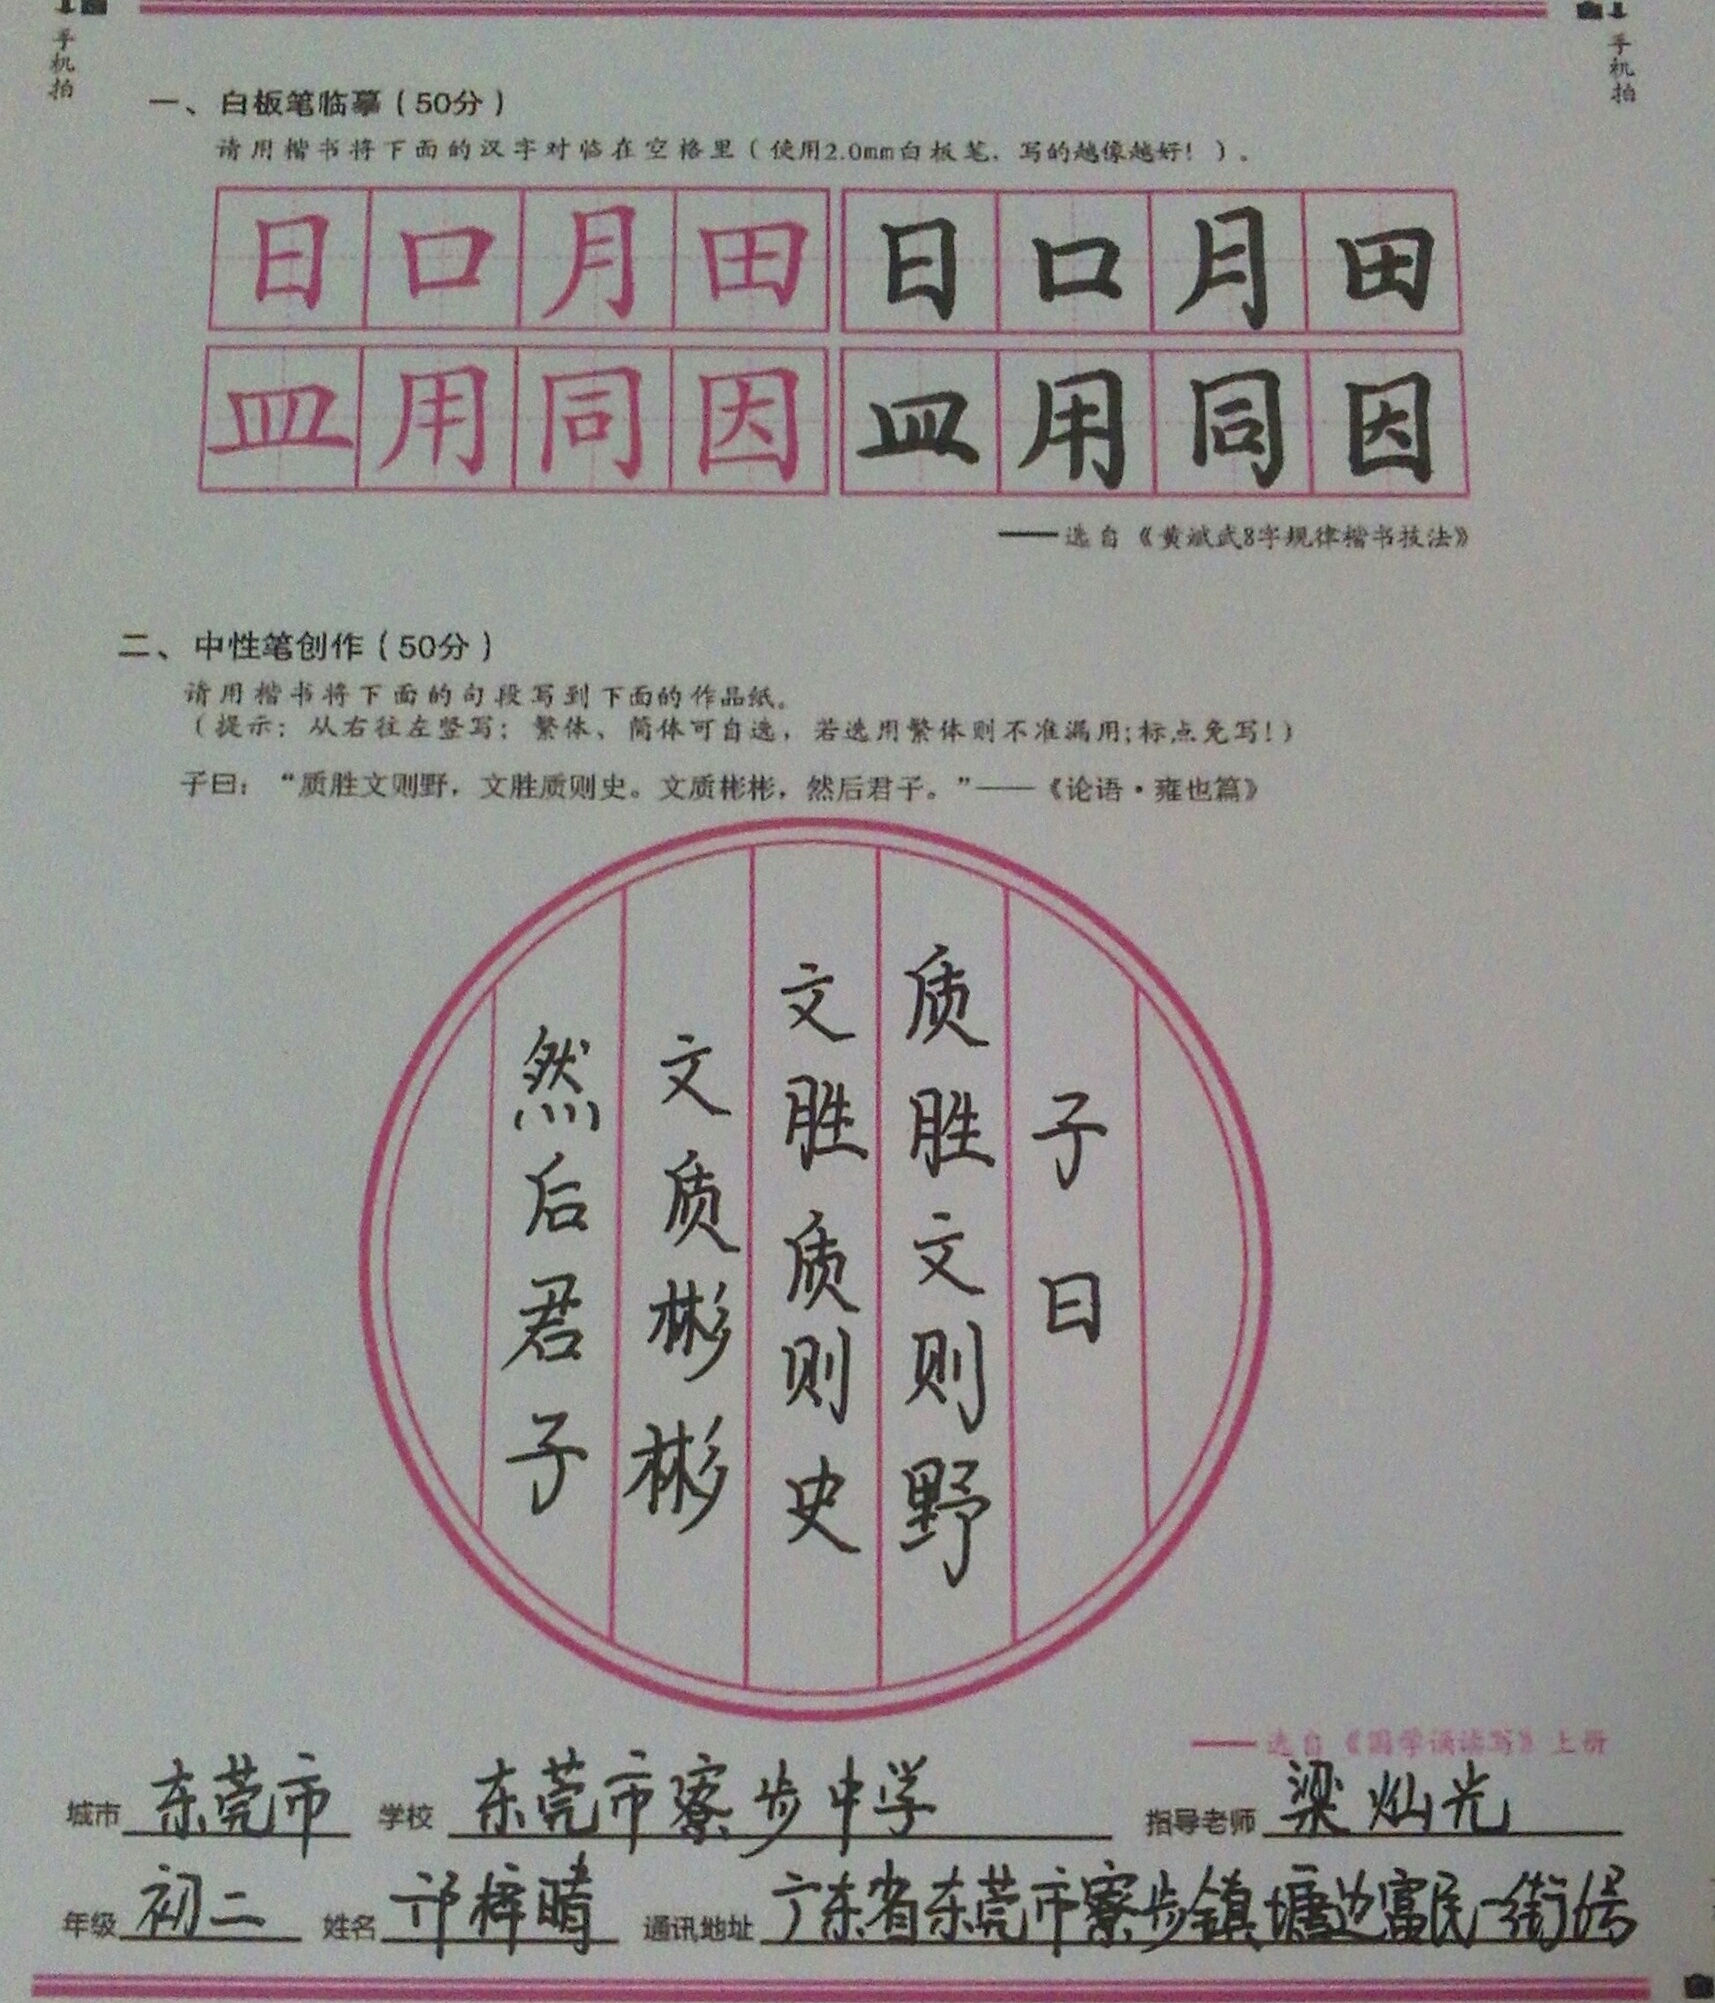 手机拍
手机拍
一、白板笔临摹（50分）
请用楷书将下面的汉字对临在空格里（使用2.0mm白板笔，写的越像越好！）。
日口月田 日口月田
皿用同因 皿用同因
——选自《黄斌武8字规律楷书技法》
二、中性笔创作（50分）
请用楷书将下面的句段写到下面的作品纸。
（提示：从右往左竖写；繁体、简体可自选，若选用繁体则不准漏用;标点免写!）
子曰：“质胜文则野，文胜质则史。文质彬彬，然后君子。”——《论语·雍也篇》
子曰
质胜文则野
文胜质则史
文质彬彬
然后君子
——选自《国学诵读写》上册
城市 东莞市 学校 东莞市寮步中学 指导老师 梁灿光
年级 初二 姓名 邝梓晴 通讯地址 广东省东莞市寮步镇塘边富民一街6号